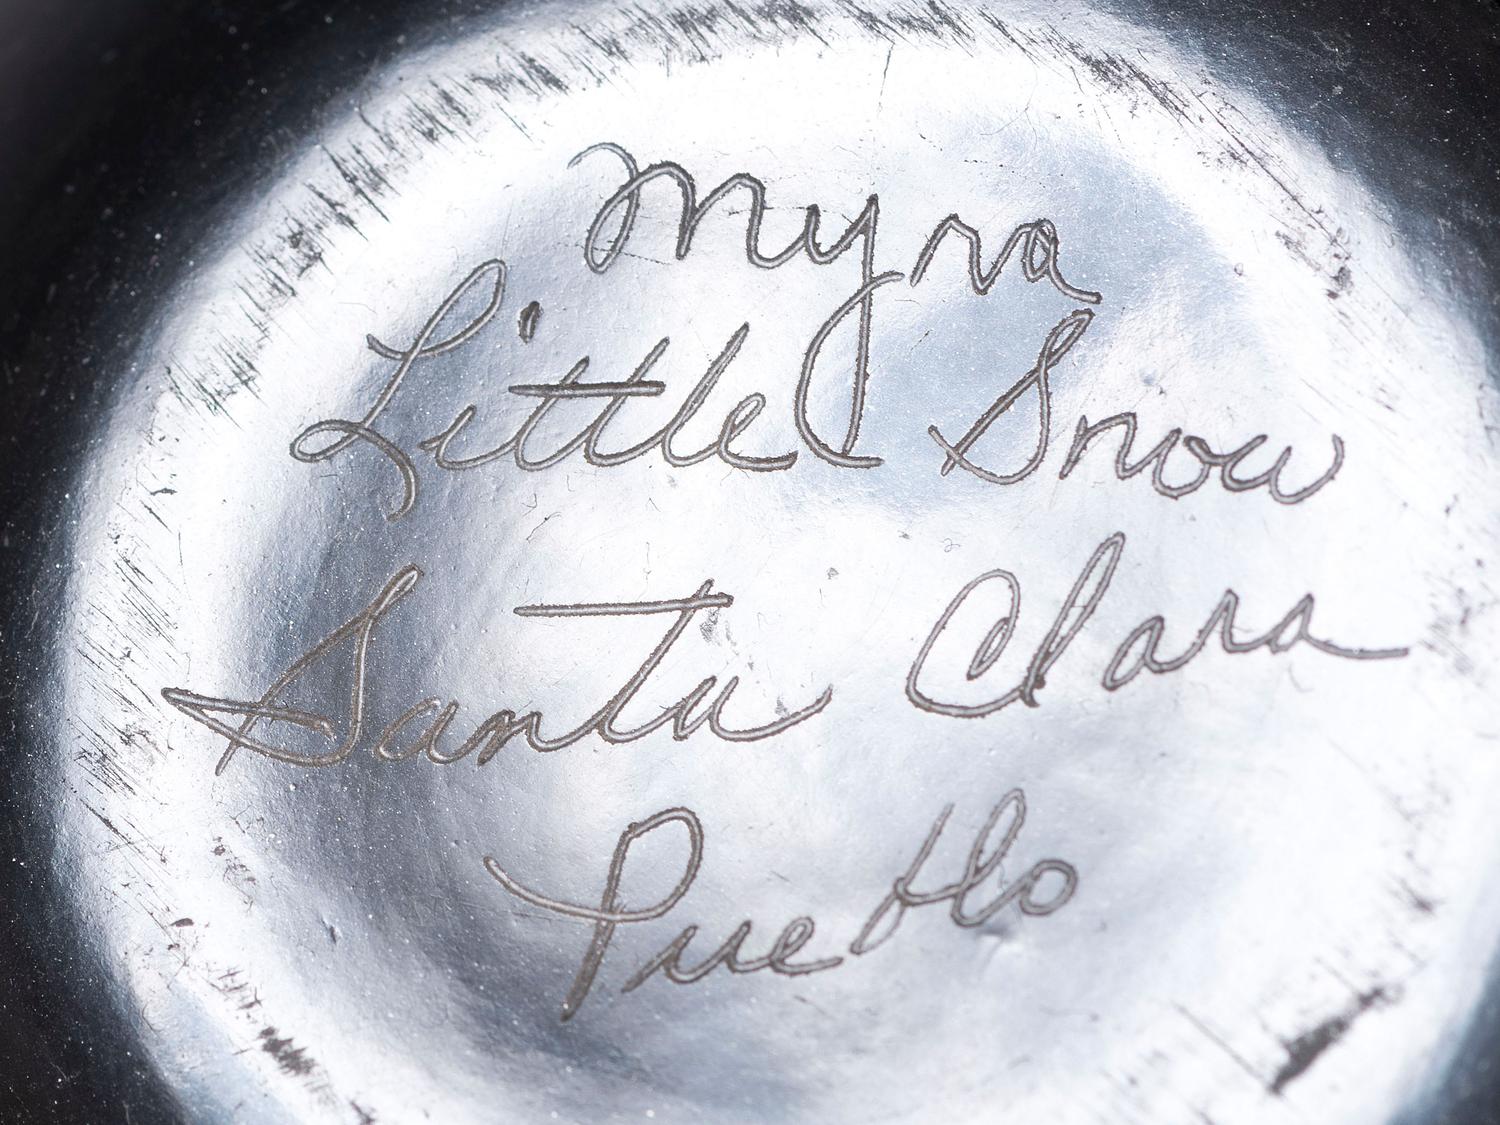 Myra
Little Snow
Santa Clara
Pueblo